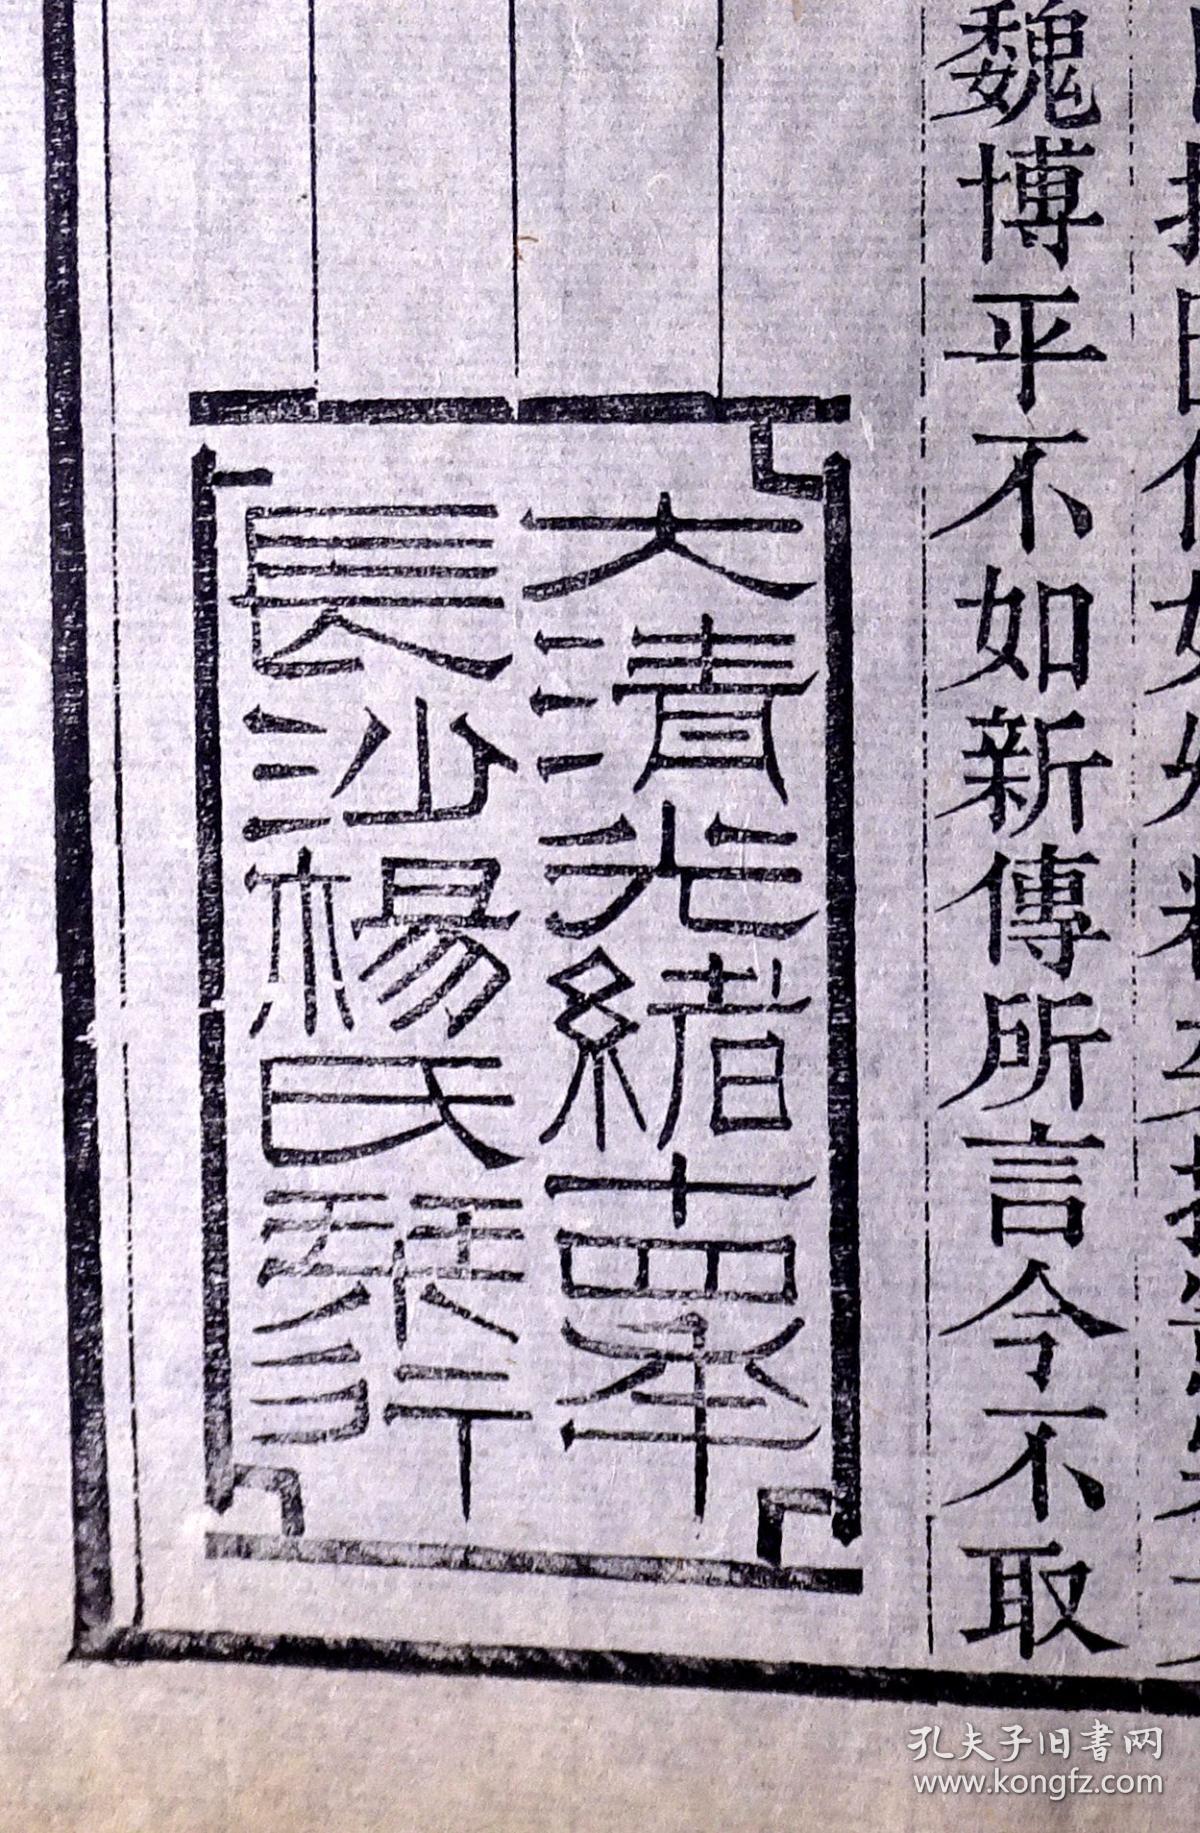 魏博平不如新傳所言今不取
大清光緒十四年
長沙楊氏栞行
孔夫子旧書网
www.kongfz.com